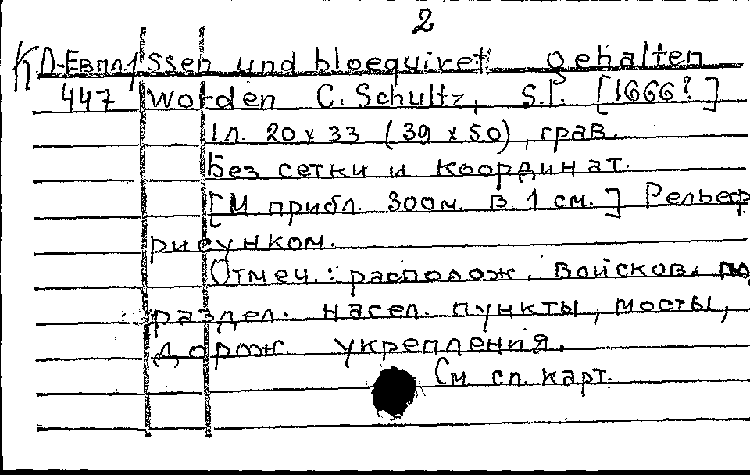 2
КО-Евпл/ ssen und bloequiret gehalten
447 worden C. Schultz, S.l. [1666?]
1 л. 20 x 33 (39 x 50), грав.
Без сетки и координат.
[М прибл. 300м. в 1 см.] Рельеф
рисунком.
Отмеч.: располож. войсков. под
раздел. насел. пункты, мосты,
дорож. укрепления.
См. сп. карт.